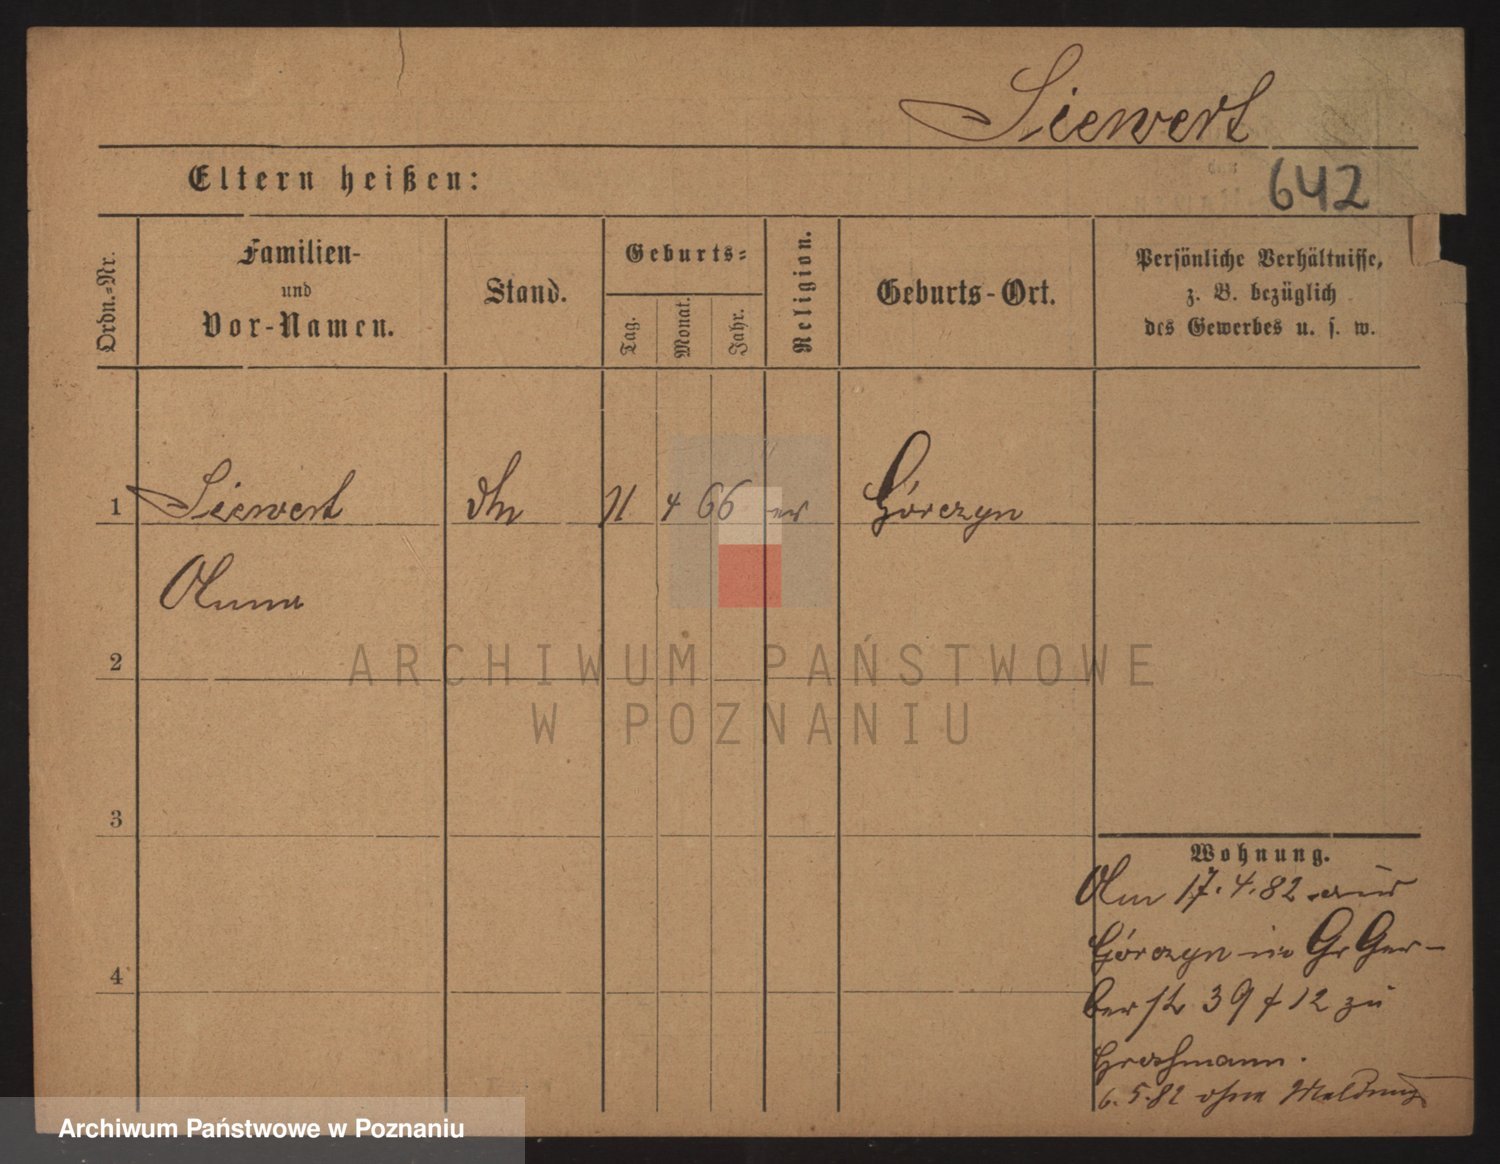 Siewert
642
Eltern heißen:
Ordn.-Nr.
Familien-
und
Vor-Namen.
Stand.
Geburts-
Tag.
Monat.
Jahr.
Religion.
Geburts-Ort.
Persönliche Verhältnisse,
z. B. bezüglich
des Gewerbes u. s. w.
1 Siewert 11 4 66 ev Górczyn
Anna
2
3
4
Wohnung.
Am 17.4.82 aus
Górczyn in Gr Ger-
berstr 39 f 12 zu
6.5.82 ohne Meldung
ARCHIWUM PAŃSTWOWE
W POZNANIU
Archiwum Państwowe w Poznaniu